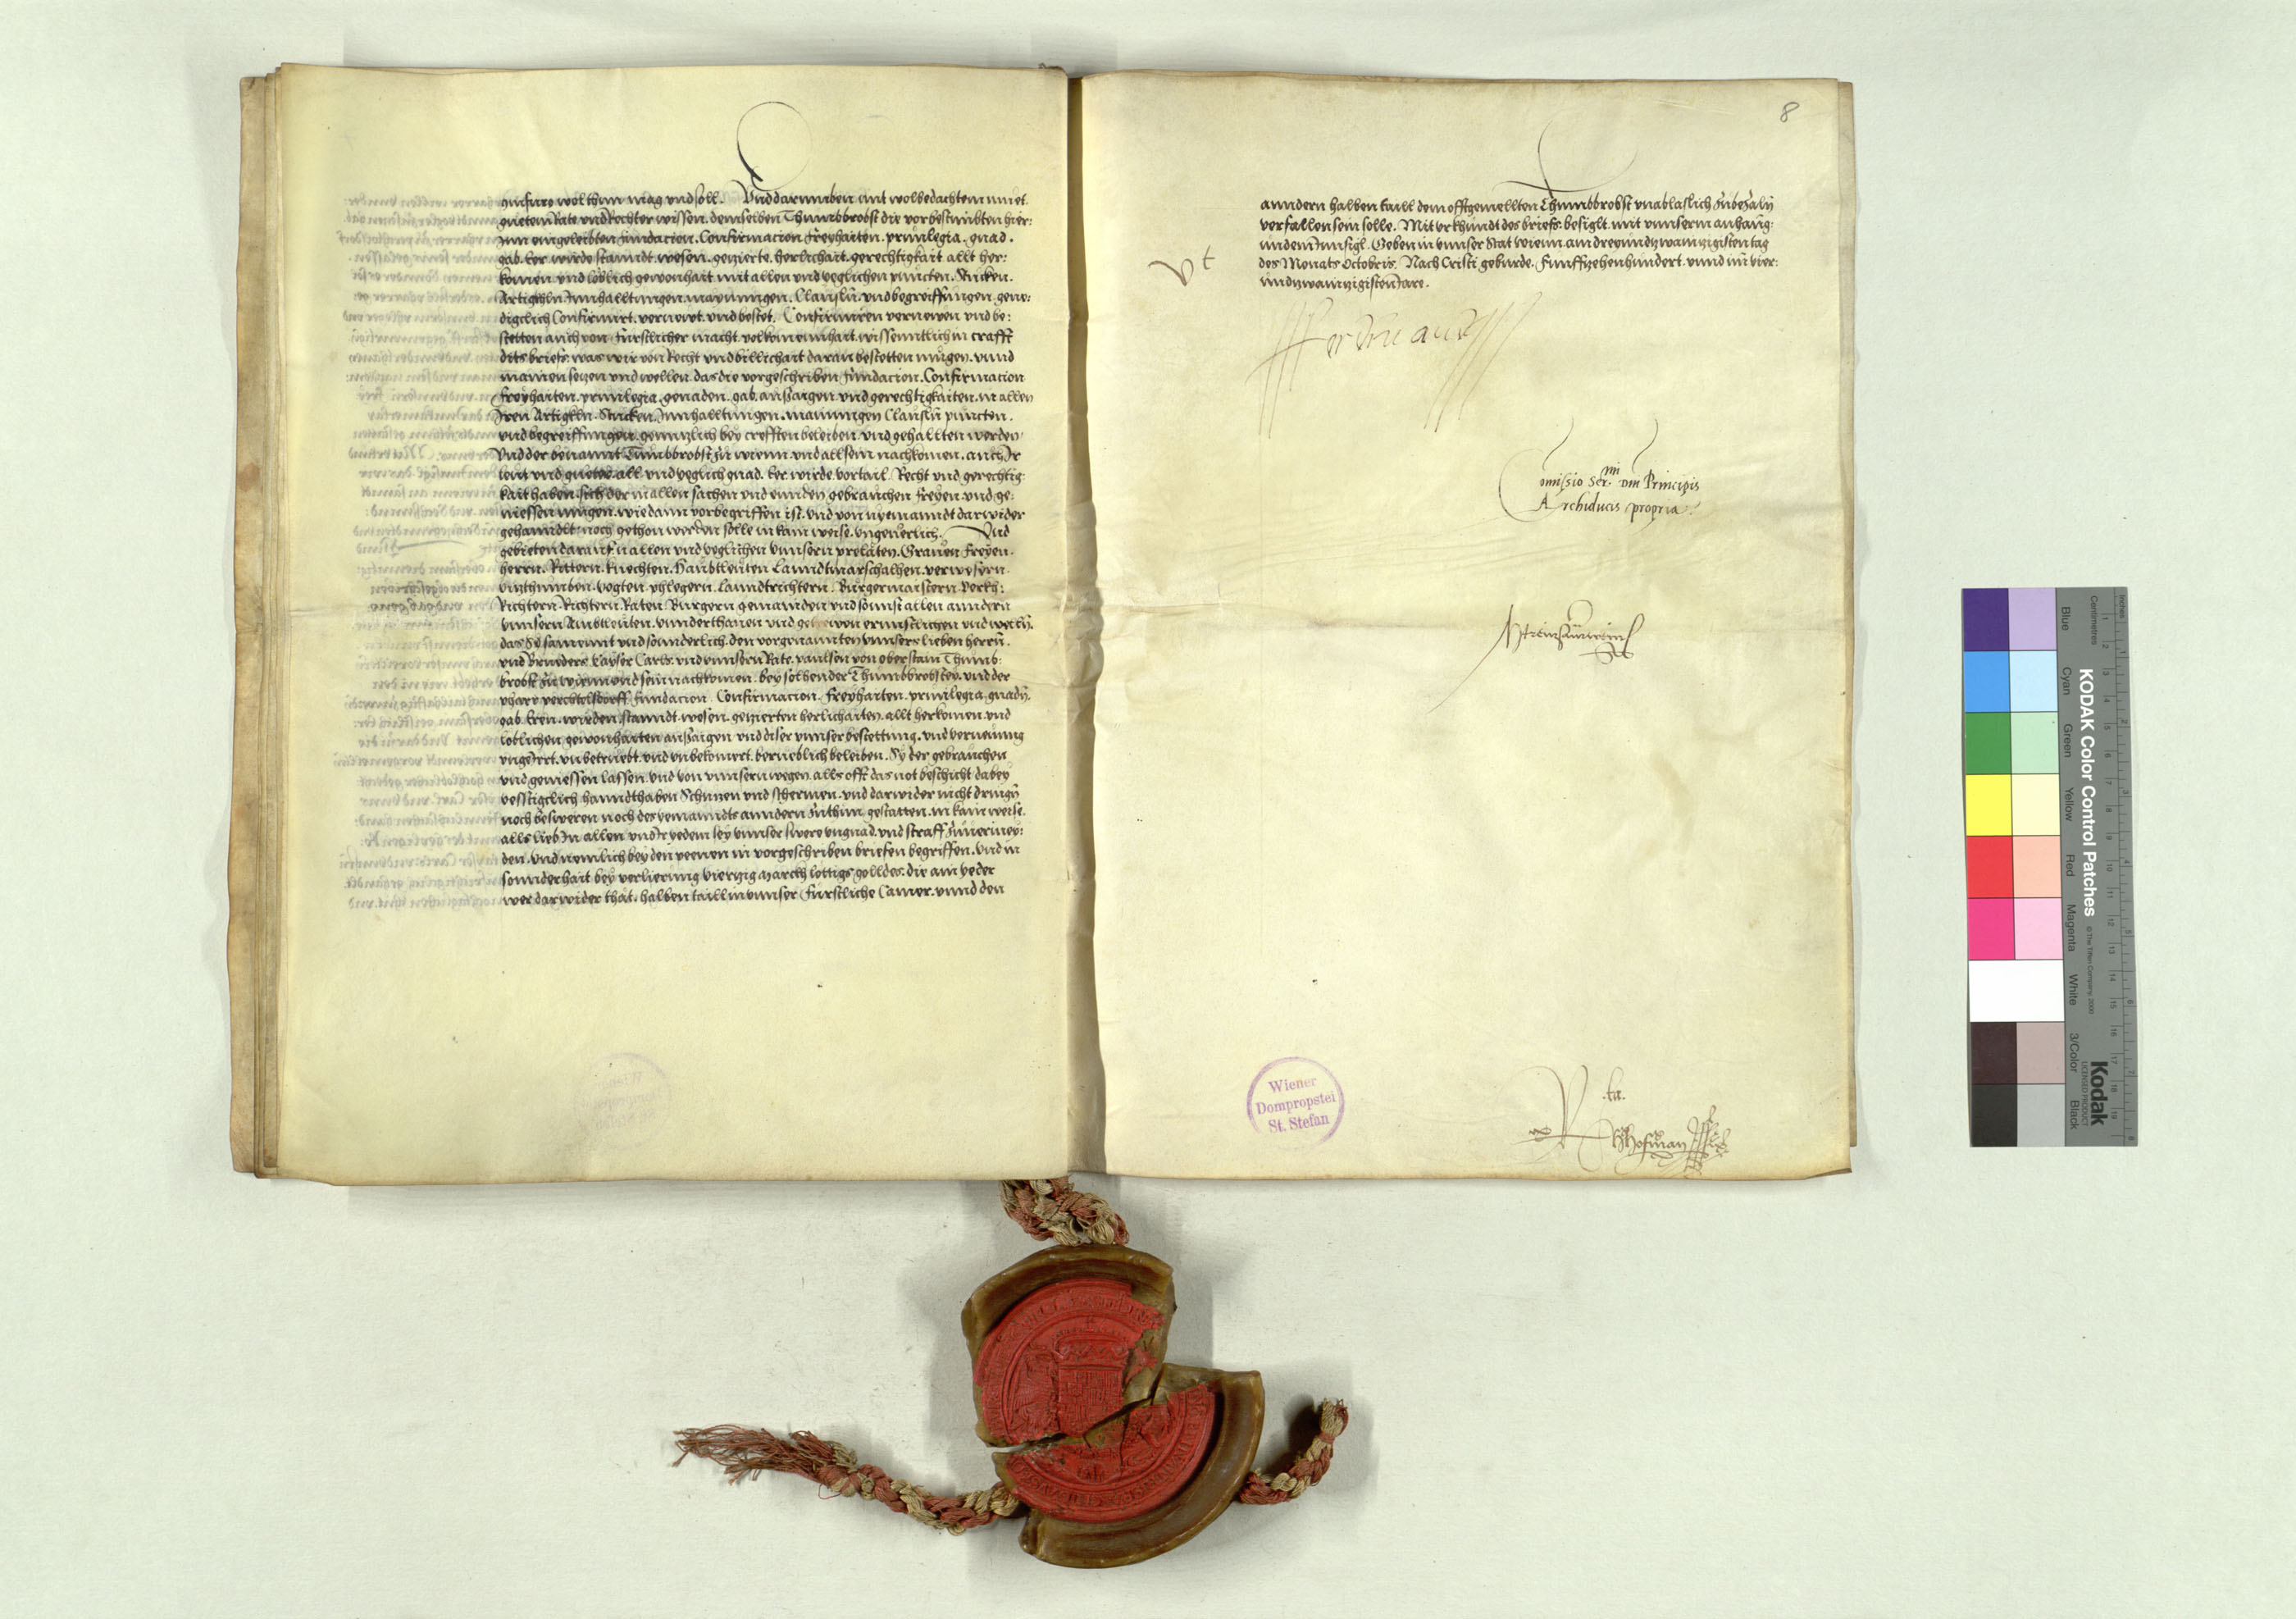 hinfuro wol thun mag vnd soll. Vnd darumben mit wolbedachtem muet.
guetem Rate vnd Rechter wissen. demselben Thumbbrobst die vorbestimbten hier:
Inn eingeleibten fundacion. Confirmacion freyhaiten. priuilegia. gnad.
gab. Eer wirde stanndt. wesen. geizierte. herlichait. gerechtigkait allt her:
komen vnd löblich gewonhait mit allen vnd yeglichen puncten. Stucken.
Artigkln Innhalltungen. maynungen. Clausln. vnd begreiffungen. gene:
digclich Confirmirt. vernewt. vnd bestet. Confirmiren vernewen vnd be:
stetten auch von fürstlicher macht. volkomennhait. wissenntlich in crafft
dits briefs. was wir von Recht vnd billichait daran bestetten mugen. vnnd
mainen setzen vnd wellen. das die vorgeschriben fundacion. Confirmacion
freyhaiten. priuilegia. genaden. gab. anszaigen vnd gerechtigkaiten. in allen
Iren Artigkln. Stucken. Innhalltungen. mainungen Clausln puncten.
vnd begreiffungen. genntzlich bey crefften beleiben. vnd gehallten werden.
Vnd der benannt Tumbbrobst zu wienn vnd all sein nachkomen. auch Ir
leut vnd gueter all vnd yeglich gnad. Eer wirde. vortail. Recht vnd gerechtig:
kait haben. sich der in allen sachen vnd ennden gebrauchen freyen. vnd ge:
niessen mugen. wie dann vorbegriffen ist. vnd von nyemanndt darwider
gehanndlt. noch gethon werden solle in kain weise. vngeuerlich. Vnd
gebieten darauf n allen vnd yeglichen vnnsern prelaten. Grauen freyen.
herrn. Rittern. knechten. Haubtleuten Lanndtmarschalhen. verwesern.
vitzthumben. Vogten. phlegern. lanndtrichtern. Burgermaistern. Perkh:
Richtern. Richtern. Raten. Burgern gemainden vnd sonnst allen anndern
vnnsern Ambtleuten. vnnderthanen vnd getrewen ernnstlichen vnd welln.
das Sy samennt vnd sonnderlich. den vorgenannten vnnsers lieben herrn.
vnd Brueders. kayser Carls. vnd vnnsern Rate. paulsen von oberstain Thumb:
brobst zu wienn vnd sein nachkomen. bey solhender Thumbbrobstey. vnd der
pharr perchtolsdorff fundacion. Confirmacion. freyhaiten. priuilegia. gnadn.
gab. Eren. wirden. stanndt. wesen. geizierten herlichaiten. allt herkomen. vnd
loblichen gewonhaiten anszaigen vnd diser vnnser bestettung. vnd vernewung
vngeirrt. vnbetruebt. vnd vnbekomert. beruelich beleiben. Sy der gebrauchen
vnd geniessen lassen. vnd von vnnsern wegen. alls offt das not beschicht dabey
vesstigclich hanndthaben Schutzen vnd schermen. vnd darwider nicht dringn
noch besweren noch des yemanndts anndern zuthun gestatten. in kain weise.
alls lieb In allen vnd Ir yedem sey vnnser swere vngnad. vnd straff zuuermey:
den. vnd nemlich bey den peenen in vorgeschriben briefen begriffen. vnd in
sonnderhait bey verlierung vierzig march lottigs golldes. die ain yeder
wer darwider thät. halben taill in vnnser fürstliche Camer. vnnd den
8
anndern halben taill dem offtgemellten Thumbbrobst vnablaslich zubezaln
verfallen sein solle. Mit vrkhundt des briefs. besiglt. mit vnnserm anhanng:
undem Innsigl. Geben in vnnser Stat wienn. am dreyundzwainzigisten tag
des Monats Octobris. Nach Cristi geburde. funffzehenhundert. vnnd im vier:
undzwainzigisten Jare.
Vt
Ferdinandus
Comissio Ser.mi dni Principis
Archiducis propria.
Rta.
Hofman
Wiener
Dompropstei
St. Stefan
KODAK Color Control Patches
© The Tiffen Company, 2000
Kodak
LICENSED PRODUCT
Centimetres
Inches
Blue
Cyan
Green
Yellow
Red
Magenta
White
3/Color
Black